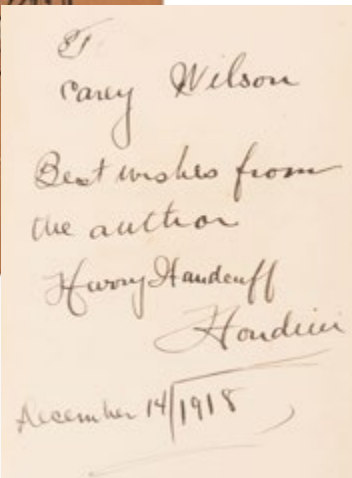 To
Carey Wilson
Best wishes from
the author
Harry Handcuff
Houdini
December 14/1918